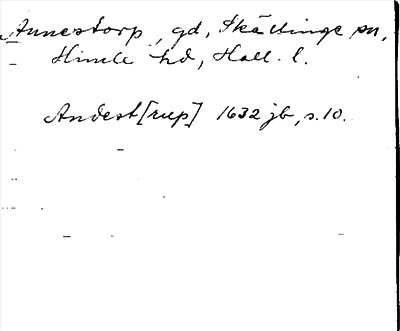 Annestorp, gd, Skällinge sn,
Himle hd, Hall. l.
Andest[rup] 1632 jb, s. 10.